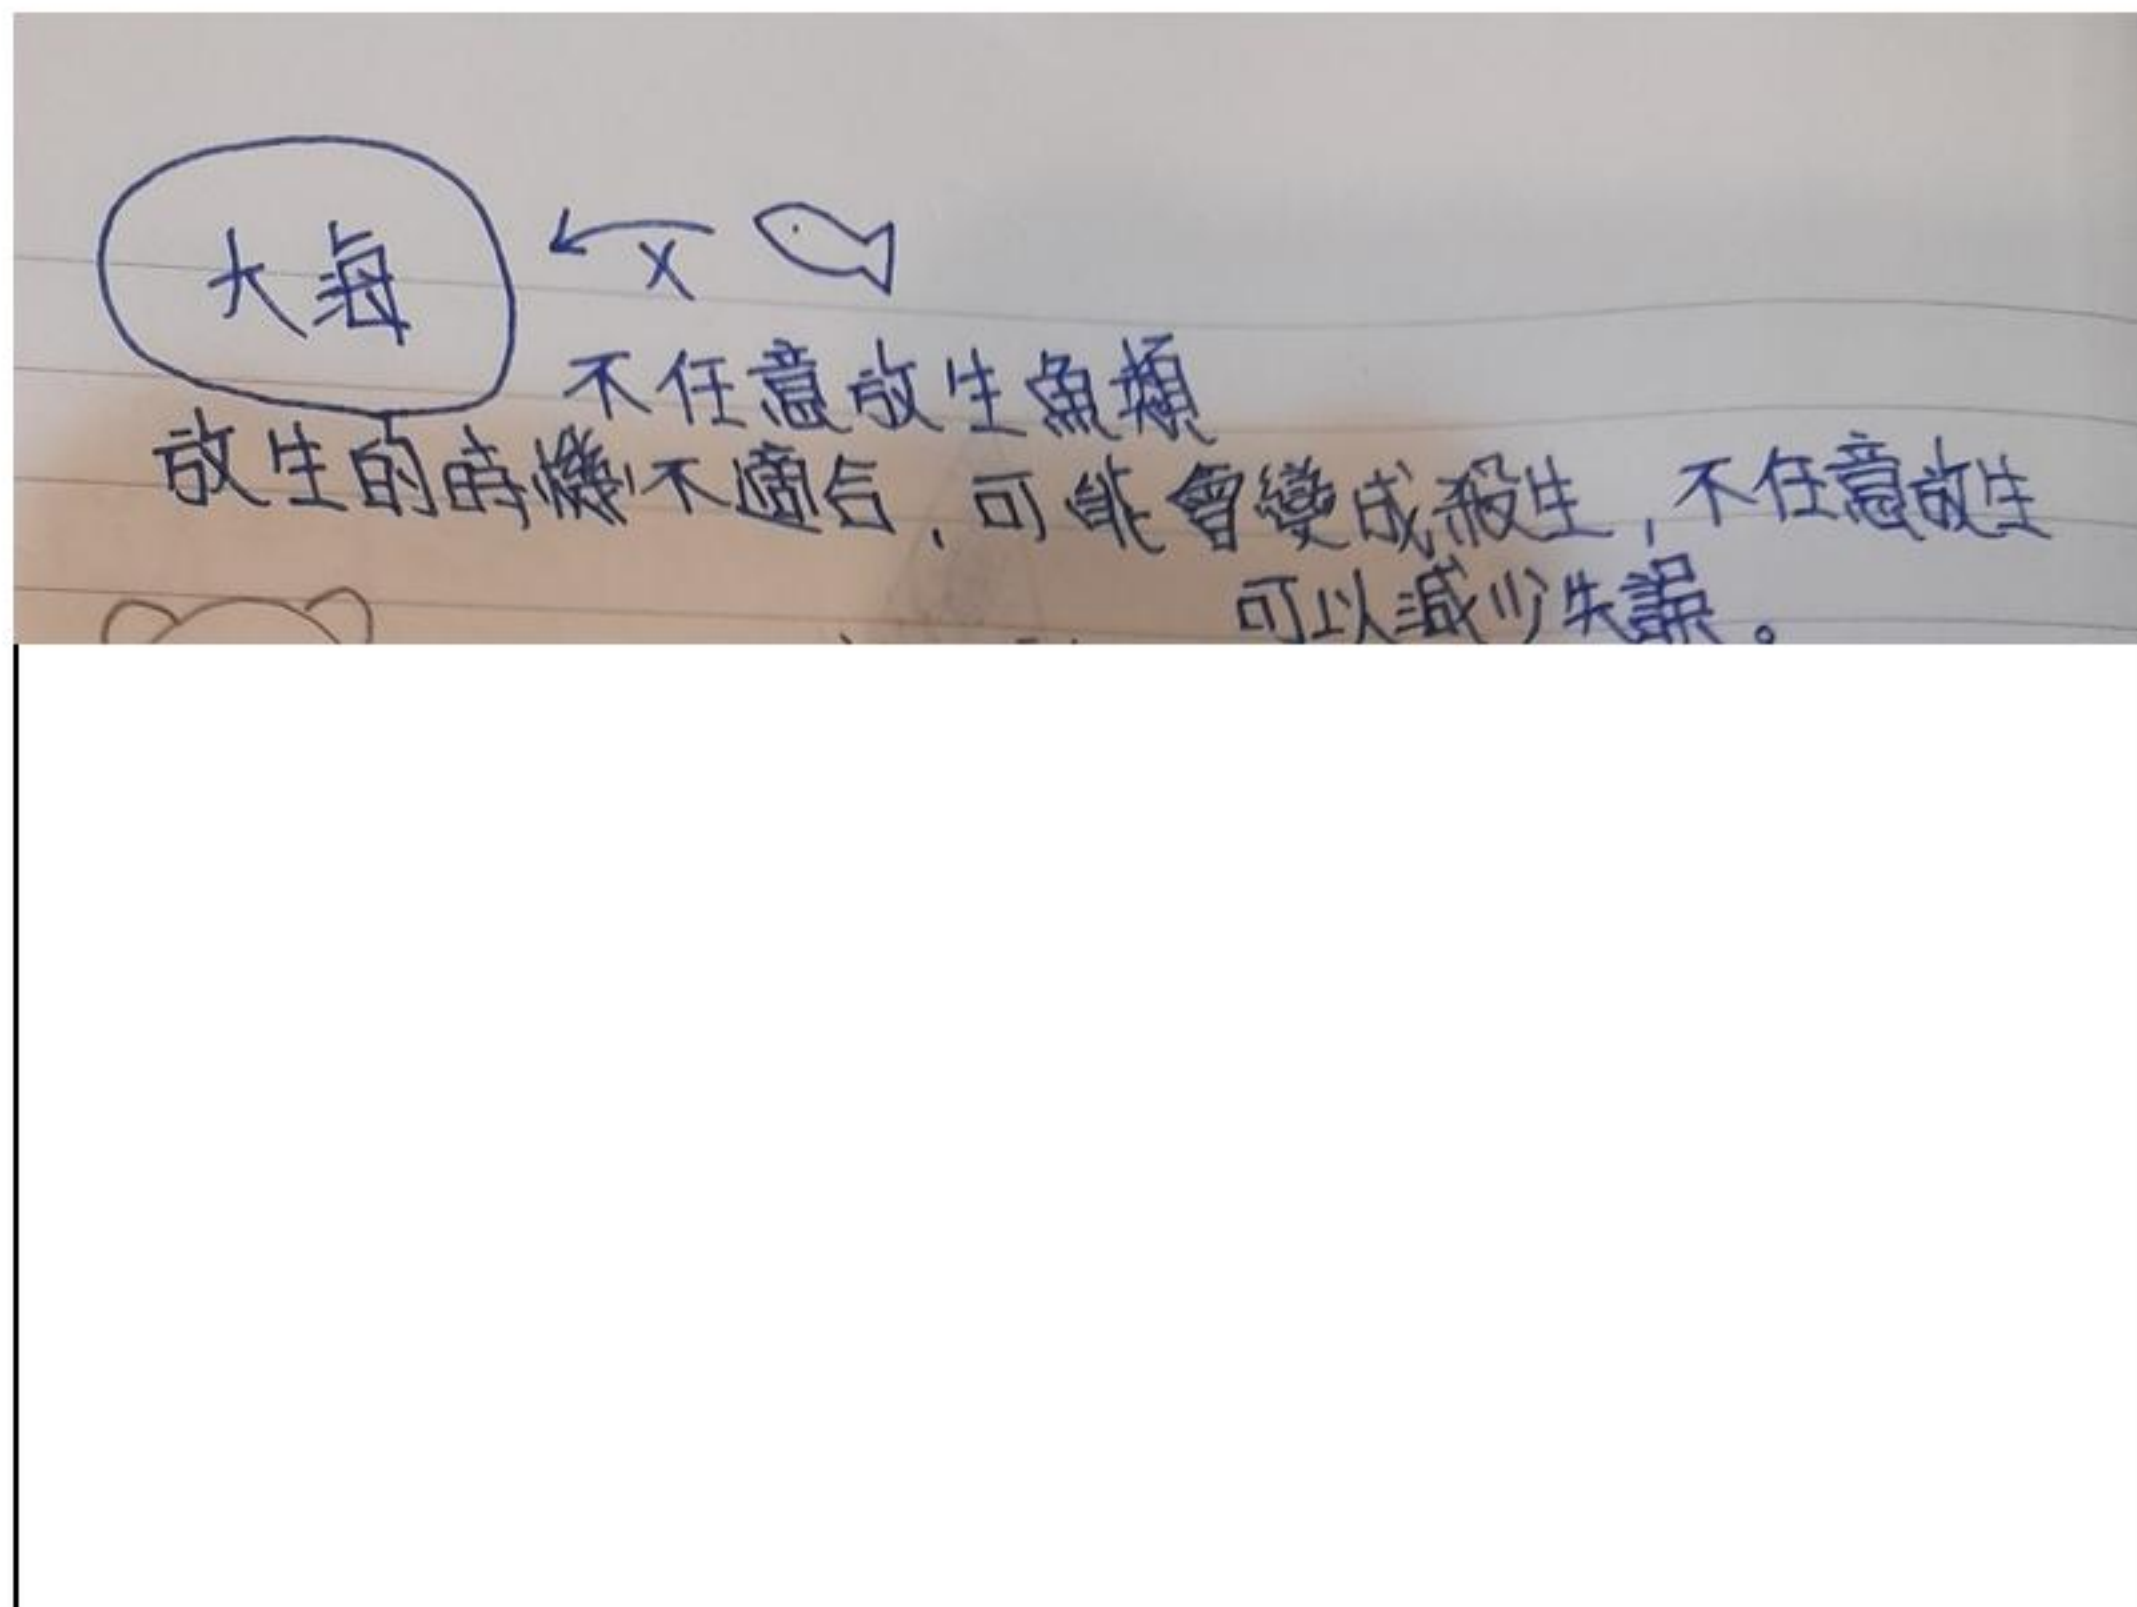 大海
X
不任意放生魚類
放生的時機不適合,可能會變成殺生,不任意放生
可以減少失誤。